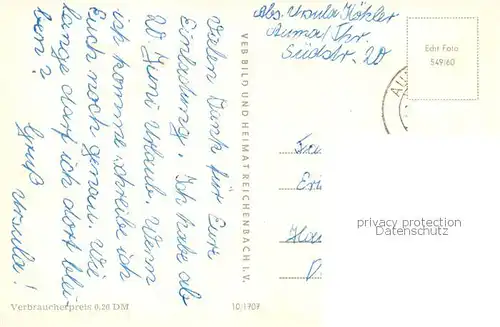 Vielen Dank für Eure
Einladung. Ich habe ab
20 Juni Urlaub. Wann
ich komme schreibe ich
Euch noch genau. Wie
lange darf ich dort blei-
ben?
Gruß Ursula!
VEB BILD UND HEIMAT REICHENBACH I. V.
Abs. Ursula Köhler
Auma/Thr.
Südstr. 20
Echt Foto
549:60
AU
privacy protection
Datenschutz
Verbraucherpreis 0,20 DM
10/1707